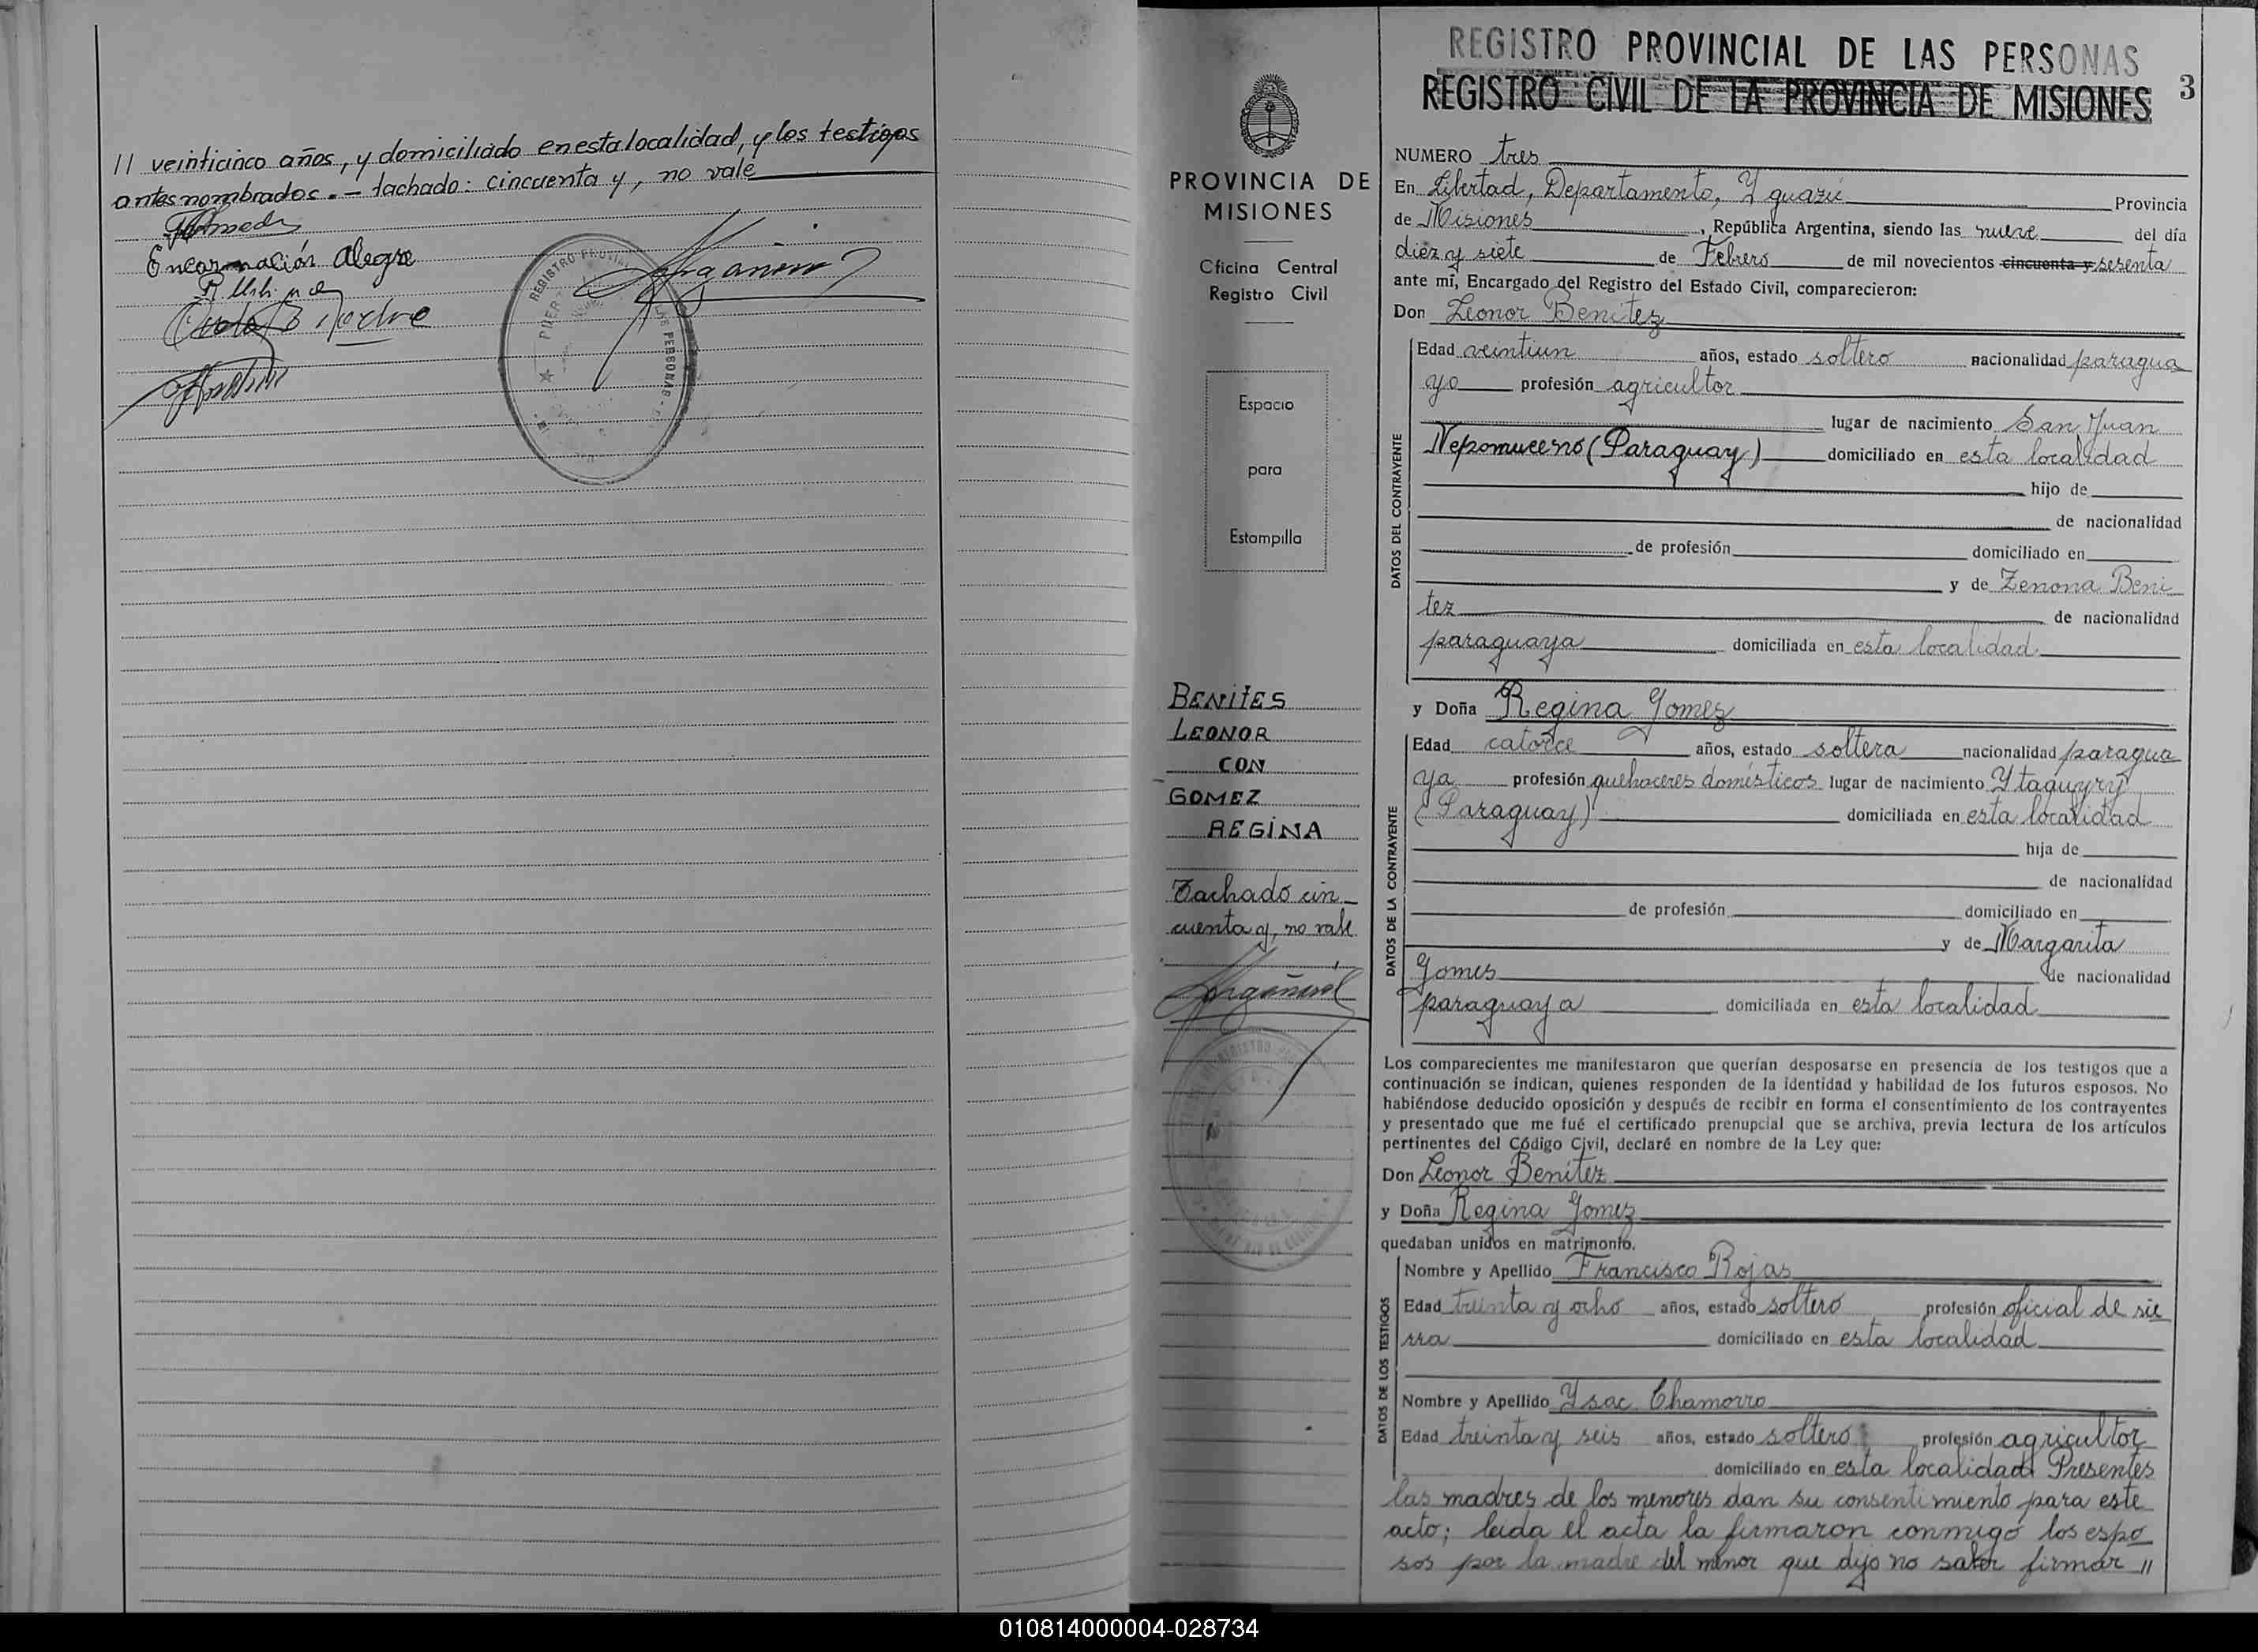 // veinticinco años, y domiciliado en esta localidad, y los testigos
antes nombrados. – tachado: cincuenta y, no vale
Encarnación Alegre
3
REGISTRO PROVINCIAL DE LAS PERSONAS
REGISTRO CIVIL DE LA PROVINCIA DE MISIONES
PROVINCIA DE
MISIONES
Oficina Central
Registro Civil
Espacio
para
Estampilla
BENITES
LEONOR
CON
GOMEZ
REGINA
Tachado cin
cuenta y, no vale
NUMERO tres
En Libertad, Departamento, Yguazú Provincia
de Misiones, República Argentina, siendo las nueve del día
diez y siete de Febrero de mil novecientos cincuenta y sesenta
ante mí, Encargado del Registro del Estado Civil, comparecieron:
Don Leonor Benitez
DATOS DEL CONTRAYENTE
Edad veintiun años, estado soltero nacionalidad paragua
yo profesión agricultor
lugar de nacimiento San Juan
Nepomuceno (Paraguay) domiciliado en esta localidad
hijo de
de nacionalidad
de profesión domiciliado en
y de Zenona Beni
tez de nacionalidad
paraguaya domiciliada en esta localidad
y Doña Regina Gomez
DATOS DE LA CONTRAYENTE
Edad catorce años, estado soltera nacionalidad paragua
ya profesión quehaceres domésticos lugar de nacimiento Ytaquyry
(Paraguay) domiciliada en esta localidad
hija de
de nacionalidad
de profesión domiciliado en
y de Margarita
Gomes de nacionalidad
paraguaya domiciliada en esta localidad
Los comparecientes me manifestaron que querían desposarse en presencia de los testigos que a
continuación se indican, quienes responden de la identidad y habilidad de los futuros esposos. No
habiéndose deducido oposición y después de recibir en forma el consentimiento de los contrayentes
y presentado que me fué el certificado prenupcial que se archiva, previa lectura de los artículos
pertinentes del Código Civil, declaré en nombre de la Ley que:
Don Leonor Benitez
y Doña Regina Gomez
quedaban unidos en matrimonio.
DATOS DE LOS TESTIGOS
Nombre y Apellido Francisco Rojas
Edad treinta y ocho años, estado soltero profesión oficial de sie
rra domiciliado en esta localidad
Nombre y Apellido Ysac Chamorro
Edad treinta y seis años, estado soltero profesión agricultor
domiciliado en esta localidad Presentes
las madres de los menores dan su consentimiento para este
acto; leida el acta la firmaron conmigo los espo
sos por la madre del menor que dijo no saber firmar //
010814000004-028734